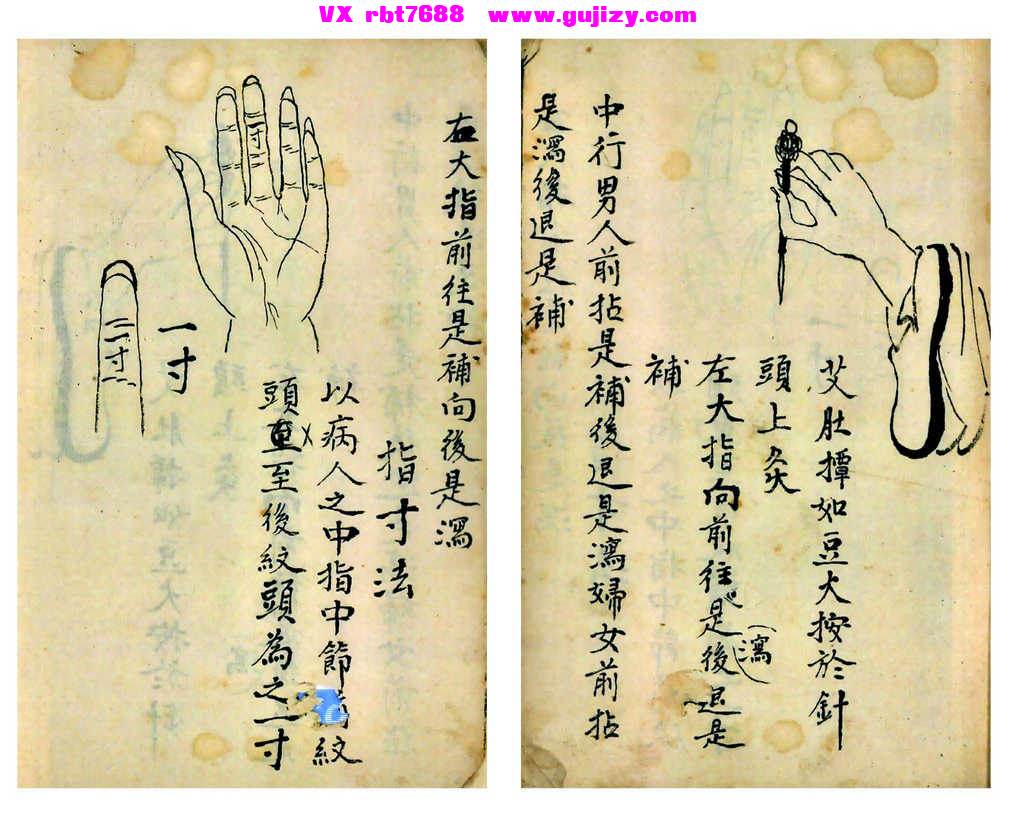 VX rbt7688 www.gujizy.com
艾肚撢如豆大按於針
頭上灸
左大指向前往是後退是
(瀉
補
中行男人前拈是補後退是瀉婦女前拈
是瀉後退是補
右大指前往是補向後是瀉
指寸法
以病人之中指中節 紋
頭至後紋頭為之一寸
寸
一寸
二寸